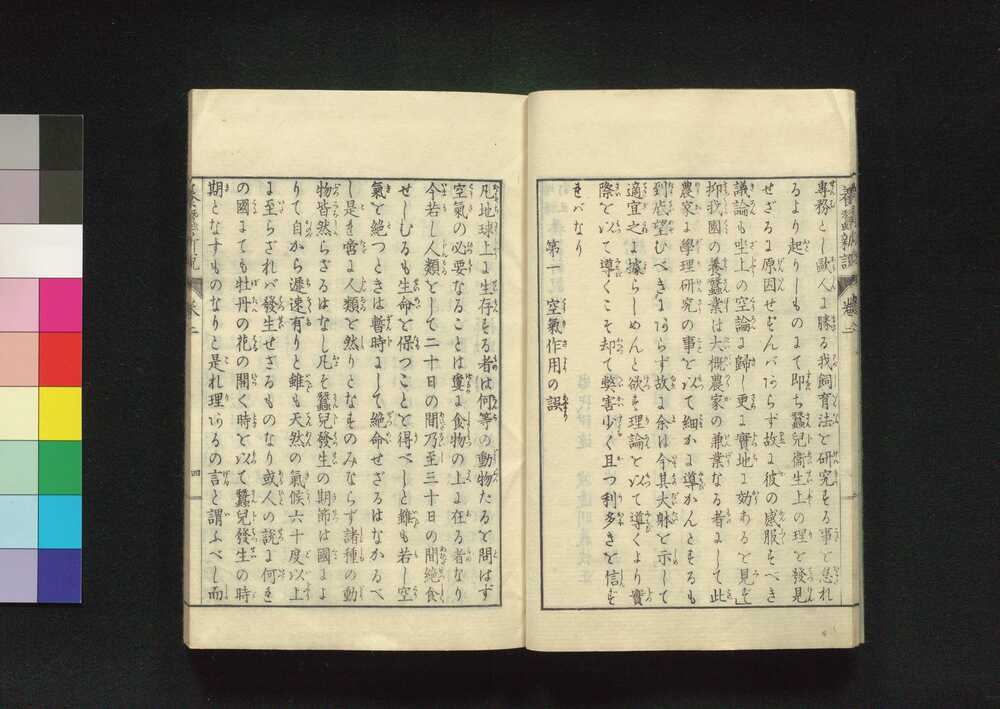 養蠶新説 卷二
專務とし歐人に勝る我飼育法を研究する事を怠れ
るより起りしものにて即ち蠶兒衞生上の理を發見
せざるに原因せずんバあらず故に彼の感服すべき
議論も坐上の空論に歸し更に實地に効あるを見ず
抑我國の養蠶業は大概農家の兼業なる者にして此
農家に學理研究の事を以て細かに導かんとするも
到底望むべきにあらず故に余は今其大躰を示して
適宜之に據らしめんと欲す理論を以て導くより實
際を以て導くこそ却て弊害少く且つ利多きを信ず
れバなり
第一 空氣作用の誤
凡地球上に生存する者は何等の動物たるを問はず
空氣の必要なることは食物の上に在る者なり
今若し人類として二十日の間乃至三十日の間絶食
せしむるも生命を保つことを得べしと雖も若し空
氣を絶つときは暫時にして絶命せざるはなかるべ
し是き啻に人類を然りとなすのみならず諸種の動
物皆然らざるはなし凡そ蠶兒發生の期節は國によ
りて自から遲速有りと雖も天然の氣候六十度以上
に至らざれバ發生せざるものなり或人の説に何き
の國にても牡丹の花の開く時を以て蠶兒發生の時
期となすものなりと是れ理あるの言と謂ふべし而
卷二
四